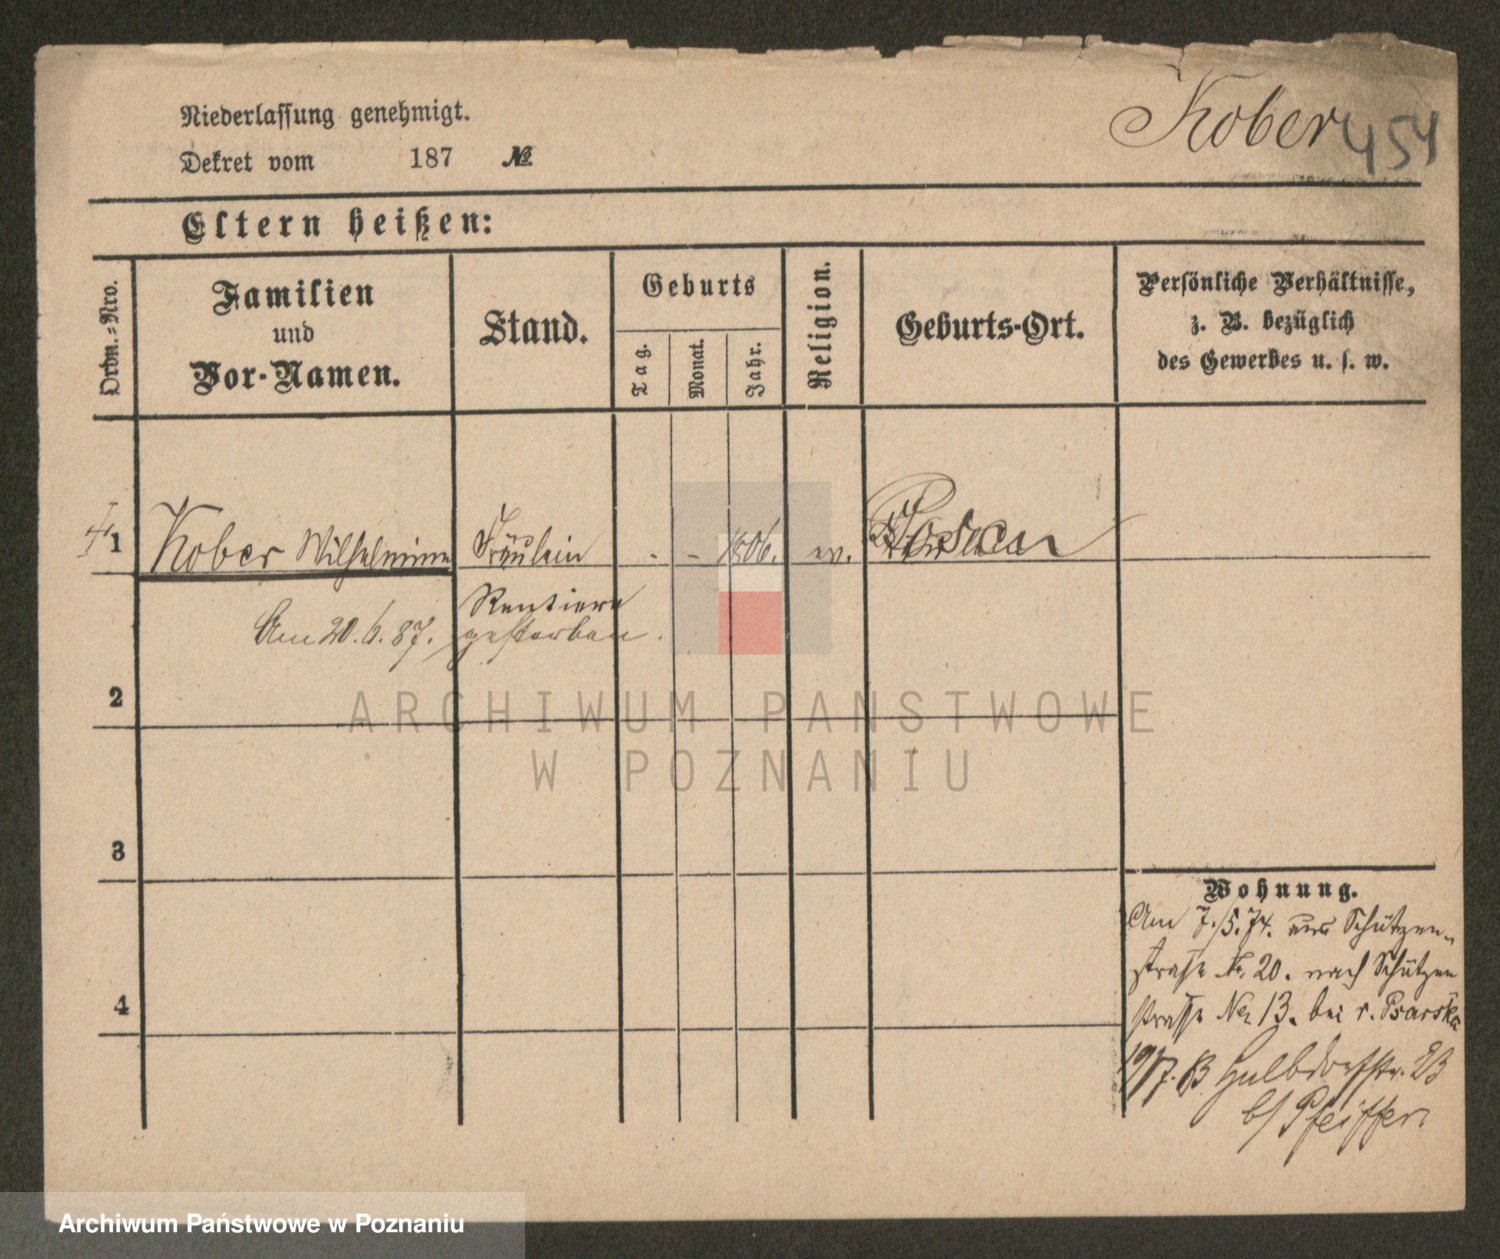 Niederlassung genehmigt.
Dekret vom 187 №
Kober 454
Eltern heißen:
Ordn.-Nro.
Familien
und
Vor-Namen.
Stand.
Geburts
Tag.
Monat.
Jahr.
Religion.
Geburts-Ort.
Persönliche Verhältnisse,
z. B. bezüglich
des Gewerbes u. s. w.
1 Kober Wilhelmine Fräulein - - 1806. ev. Posen
Rentiere
Am 20.6.87. gestorben.
2
3
4
Wohnung.
Am 7./5.74. aus Schützen-
straße Nr. 20. nach Schützen
straße Nr 13. bei v. Psarska
Halbdorfstr. 23
b/ Pfeiffer.
ARCHIWUM PAŃSTWOWE
W POZNANIU
Archiwum Państwowe w Poznaniu